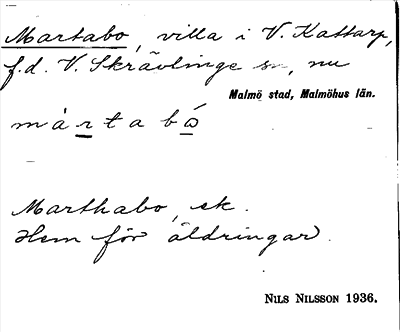 Martabo, villa i V. Kattarp,
f.d. V. Skrävlinge sn, nu
Malmö stad, Malmöhus län.
màrtabó
Marthabo, ek.
Hem för åldringar.
NILS NILSSON 1936.